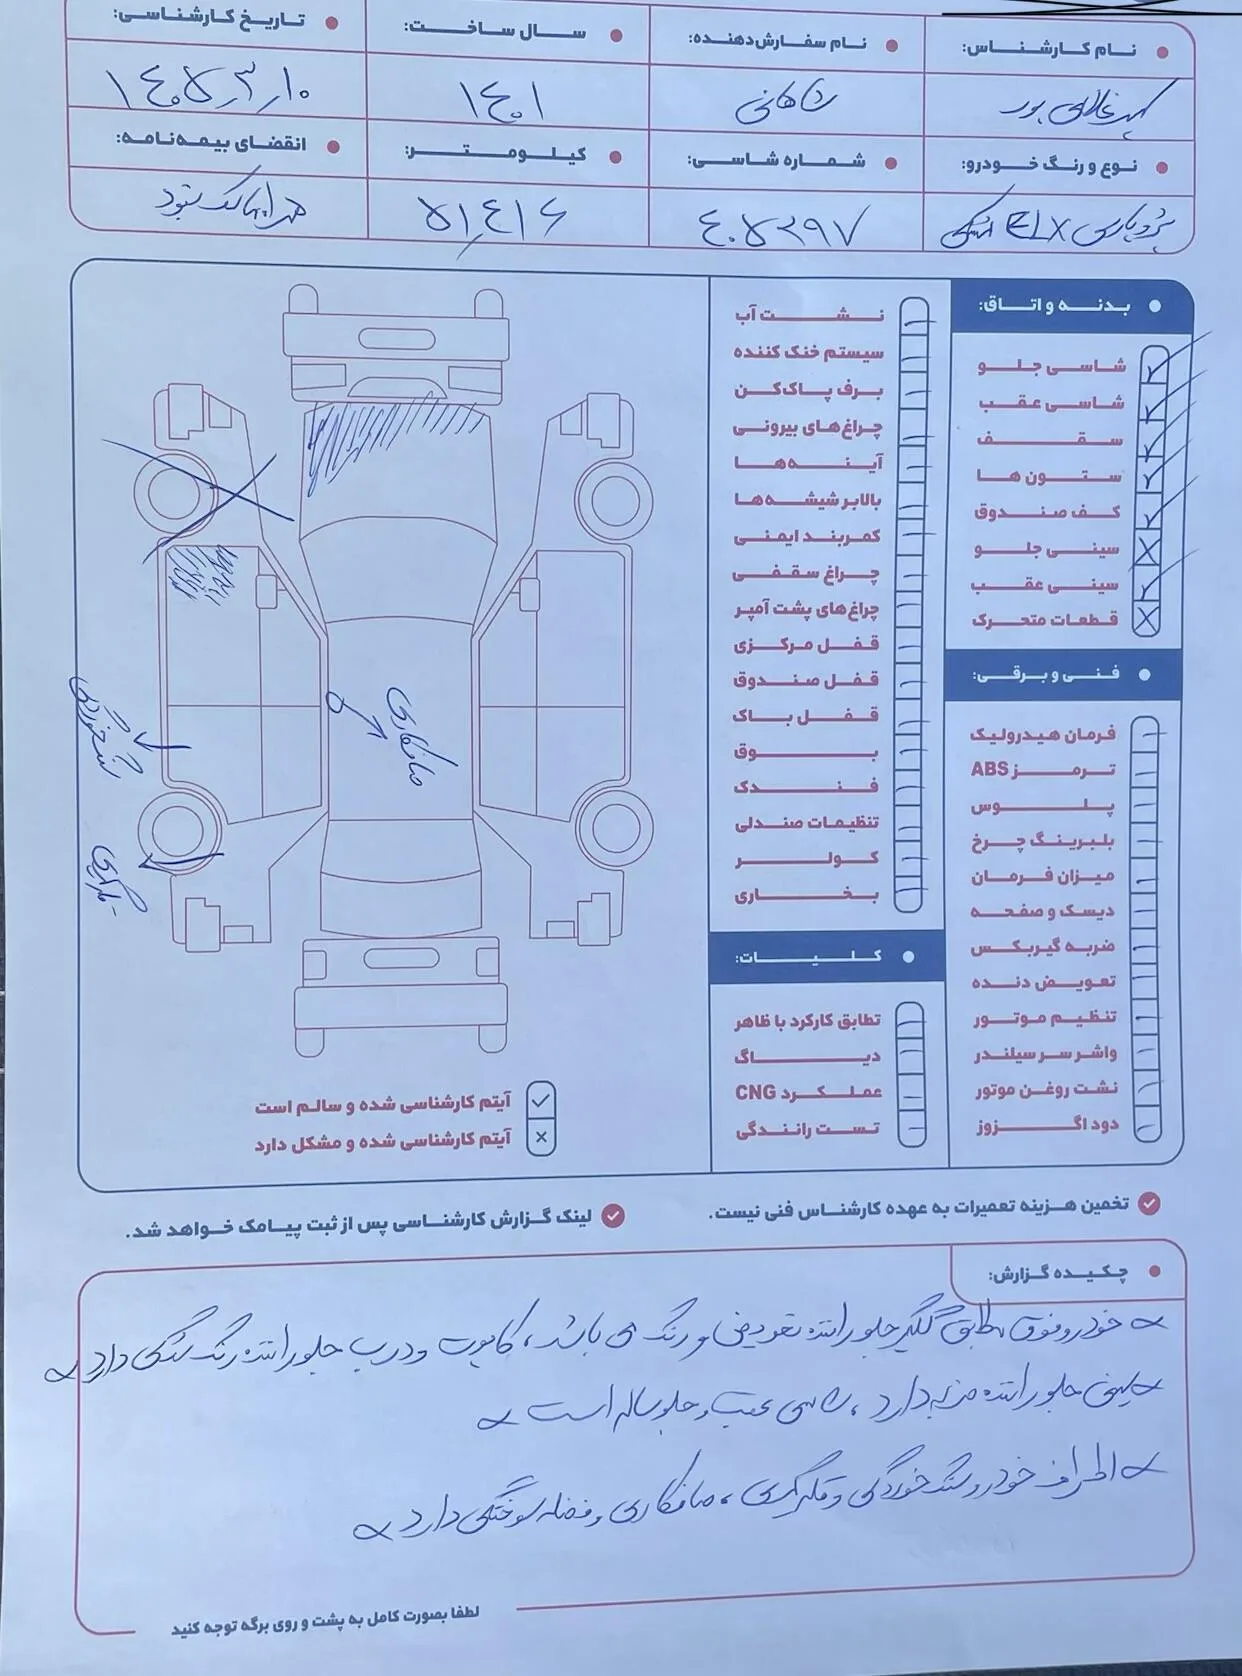 نام کارشناس:
نام سفارش‌دهنده:
سال ساخت:
تاریخ کارشناسی:
پور
شاهانی
۱۴۰۱
۱۴۰۵٫۳٫۱۰
نوع و رنگ خودرو:
شماره شاسی:
کیلومتر:
انقضای بیمه‌نامه:
پژو پارس ELX مشکی
۴۰۵۲۹۷
۵۱٫۴۱۶
همراه مالک نبود
بدنه و اتاق:
شاسی جلو
شاسی عقب
سقف
ستون ها
کف صندوق
سینی جلو
سینی عقب
قطعات متحرک
فنی و برقی:
فرمان هیدرولیک
ترمز ABS
پلوس
بلبرینگ چرخ
میزان فرمان
دیسک و صفحه
ضربه گیربکس
تعویض دنده
تنظیم موتور
واشر سر سیلندر
نشت روغن موتور
دود اگزوز
نشت آب
سیستم خنک کننده
برف پاک‌کن
چراغ‌های بیرونی
آینه‌ها
بالابر شیشه‌ها
کمربند ایمنی
چراغ سقفی
چراغ‌های پشت آمپر
قفل مرکزی
قفل صندوق
قفل باک
بوق
فندک
تنظیمات صندلی
کولر
بخاری
کلیات:
تطابق کارکرد با ظاهر
دیاگ
عملکرد CNG
تست رانندگی
صافکاری
سنگ خوردگی
لکه‌گیری
آیتم کارشناسی شده و سالم است
آیتم کارشناسی شده و مشکل دارد
تخمین هزینه تعمیرات به عهده کارشناس فنی نیست.
لینک گزارش کارشناسی پس از ثبت پیامک خواهد شد.
چکیده گزارش:
خودرو فوق مطابق گلگیر جلو راننده تعویض و رنگ می باشد، کاپوت و درب جلو راننده رنگ سنگی دارد
سینی جلو راننده ضربه دارد، شاسی عقب و جلو سالم است
اطراف خودرو سنگ خوردگی و لکه گیری، صافکاری و فضله سوختگی دارد
لطفا بصورت کامل به پشت و روی برگه توجه کنید